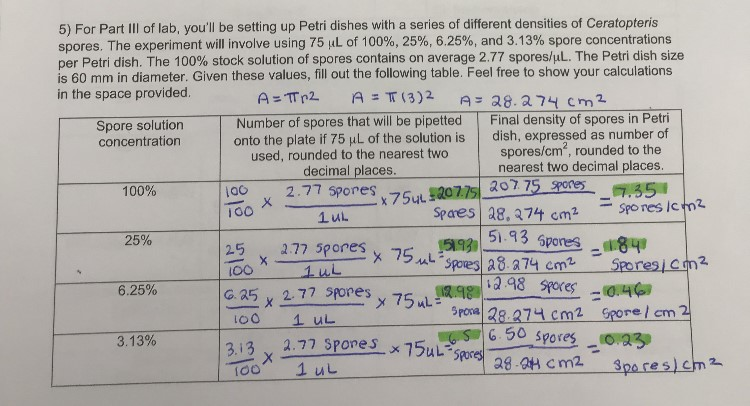 5) For Part III of lab, you'll be setting up Petri dishes with a series of different densities of Ceratopteris
spores. The experiment will involve using 75 µL of 100%, 25%, 6.25%, and 3.13% spore concentrations
per Petri dish. The 100% stock solution of spores contains on average 2.77 spores/µL. The Petri dish size
is 60 mm in diameter. Given these values, fill out the following table. Feel free to show your calculations
in the space provided.
A=πr2 A = π(3)2 A= 28.274 cm2
Spore solution
concentration
Number of spores that will be pipetted
onto the plate if 75 µL of the solution is
used, rounded to the nearest two
decimal places.
Final density of spores in Petri
dish, expressed as number of
spores/cm², rounded to the
nearest two decimal places.
100%
100/100 × 2.77 spores/1uL ×75uL=207.75 spores
207.75 spores/28.274 cm2 = 7.35 spores/cm2
25%
25/100 × 2.77 spores/1uL × 75uL=51.93 spores
51.93 spores/28.274 cm2 = 1.84 spores/cm2
6.25%
6.25/100 × 2.77 spores/1 uL × 75uL=12.98 spores
12.98 spores/28.274 cm2 = 0.46 spore/cm2
3.13%
3.13/100 × 2.77 spores/1 uL ×75uL=6.5 spores
6.50 spores/28.274 cm2 = 0.23 spores/cm2